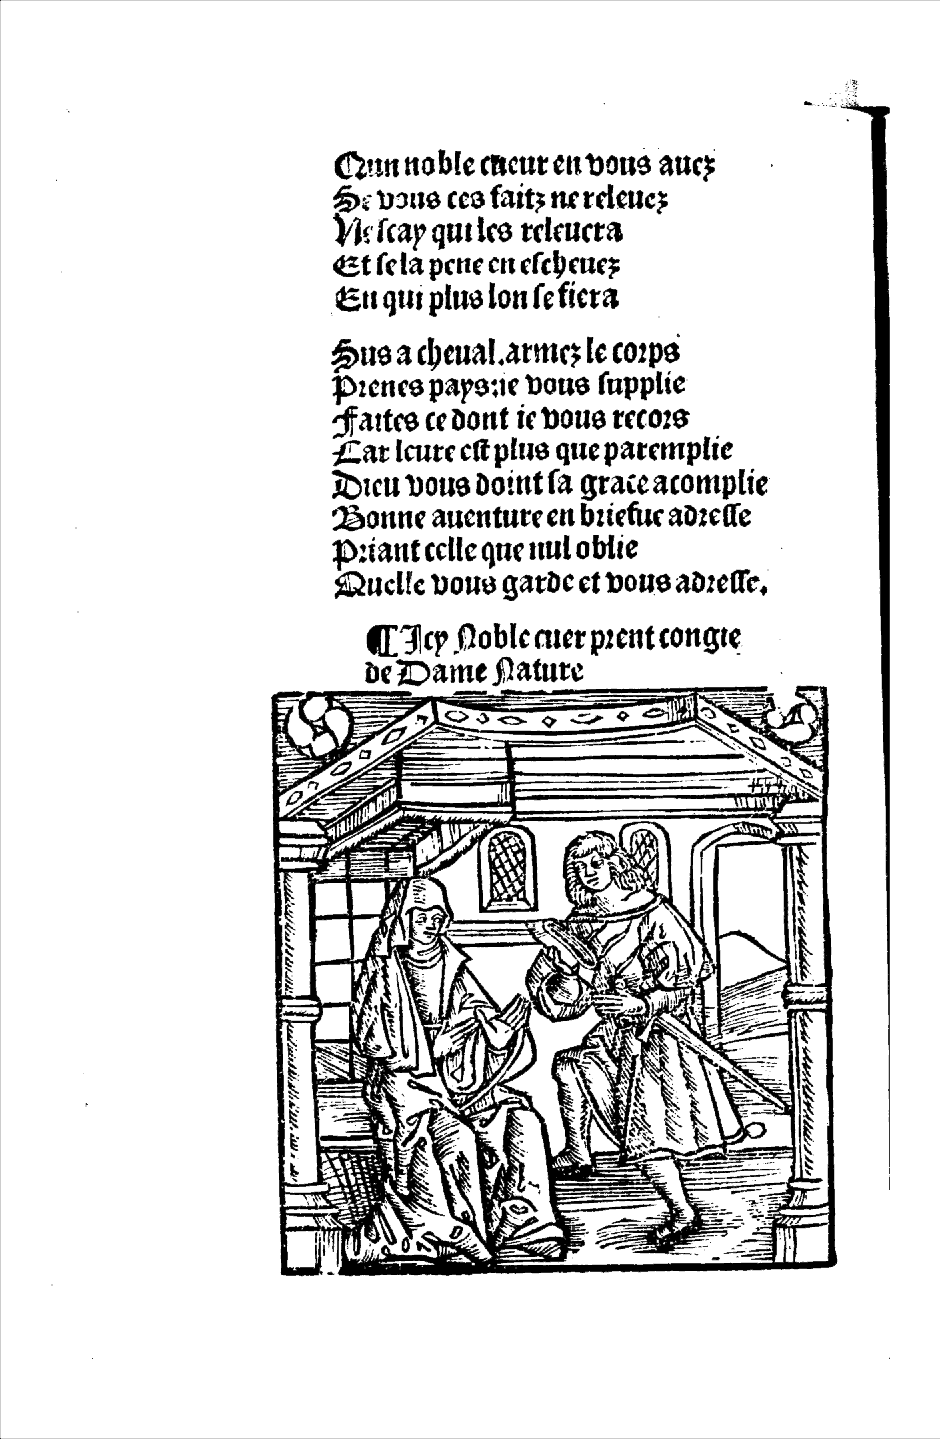 Qun noble cueur en vous auez
Se vous ces faitz ne releuez
Ne scay qui les releuera
Et se la pene en escheuez
En qui plus lon se fiera
Sus a cheual.armez le corps
Prenes pays:ie vous supplie
Faites ce dont ie vous recors
Car leure est plus que paremplie
Dieu vous doint sa grace acomplie
Bonne auenture en briefue adresse
Priant celle que nul oblie
Quelle vous garde et vous adresse.
¶ Icy Noble cuer prent congie
de Dame Nature